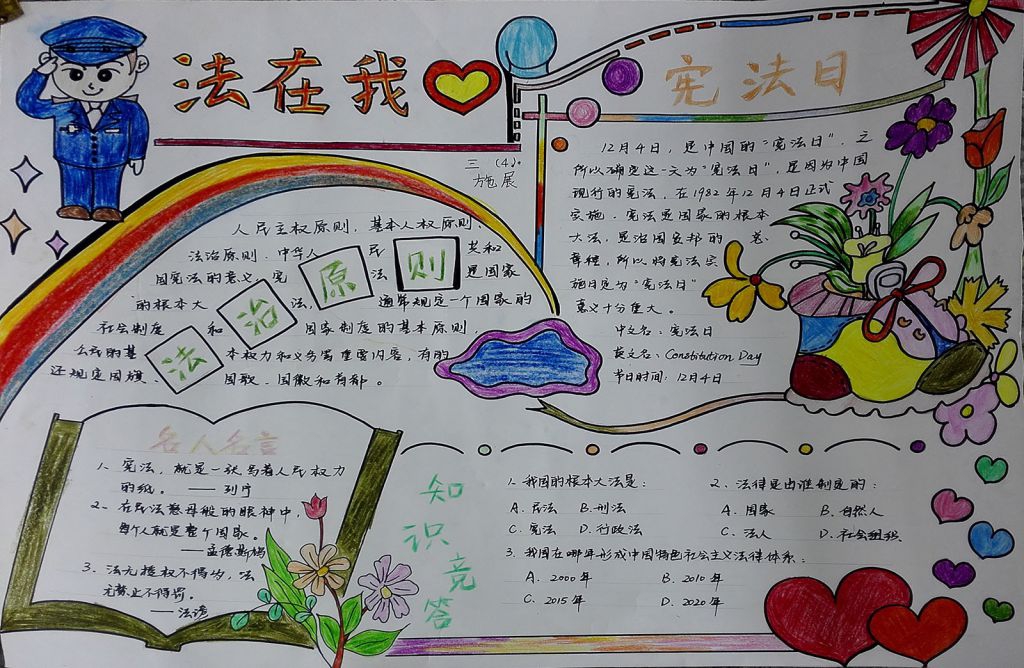 法在我
三(4).
方施展
宪法日
12月4日，是中国的“宪法日”．之
所以确定这一天为“宪法日”，是因为中国
现行的宪法，在1982年12月4日正式
实施．宪法是国家的根本
大法，是治国安邦的 总
章程，所以将宪法实
施日定为“宪法日”
意义十分重大。
中文名：宪法日
英文名：Constitution Day
节日时间：12月4日
法治原则
人民主权原则，基本人权原则、
法治原则．中华人 民 共和
国宪法的意义．宪 法 是国家
的根本大 法， 通常规定一个国家的
社会制度 和 国家制度的基本原则，
公民的基 本权力和义务等重要内容，有的
还规定国旗、 国歌．国徽和首都。
名人名言
1、宪法，就是一张写着人民权力
的纸。——列宁
2、在民法慈母般的眼神中，
每个人就是整个国家。
——孟德斯鸠
3、法无授权不得为，法
无禁止不得罚。
——法谚
知识竞答
1、我国的根本大法是：
A．民法 B．刑法
C．宪法 D．行政法
2、法律是由谁制定的：
A．国家 B．自然人
C．法人 D．社会组织
3、我国在哪年形成中国特色社会主义法律体系：
A．2000年 B．2010年
C．2015年 D．2020年